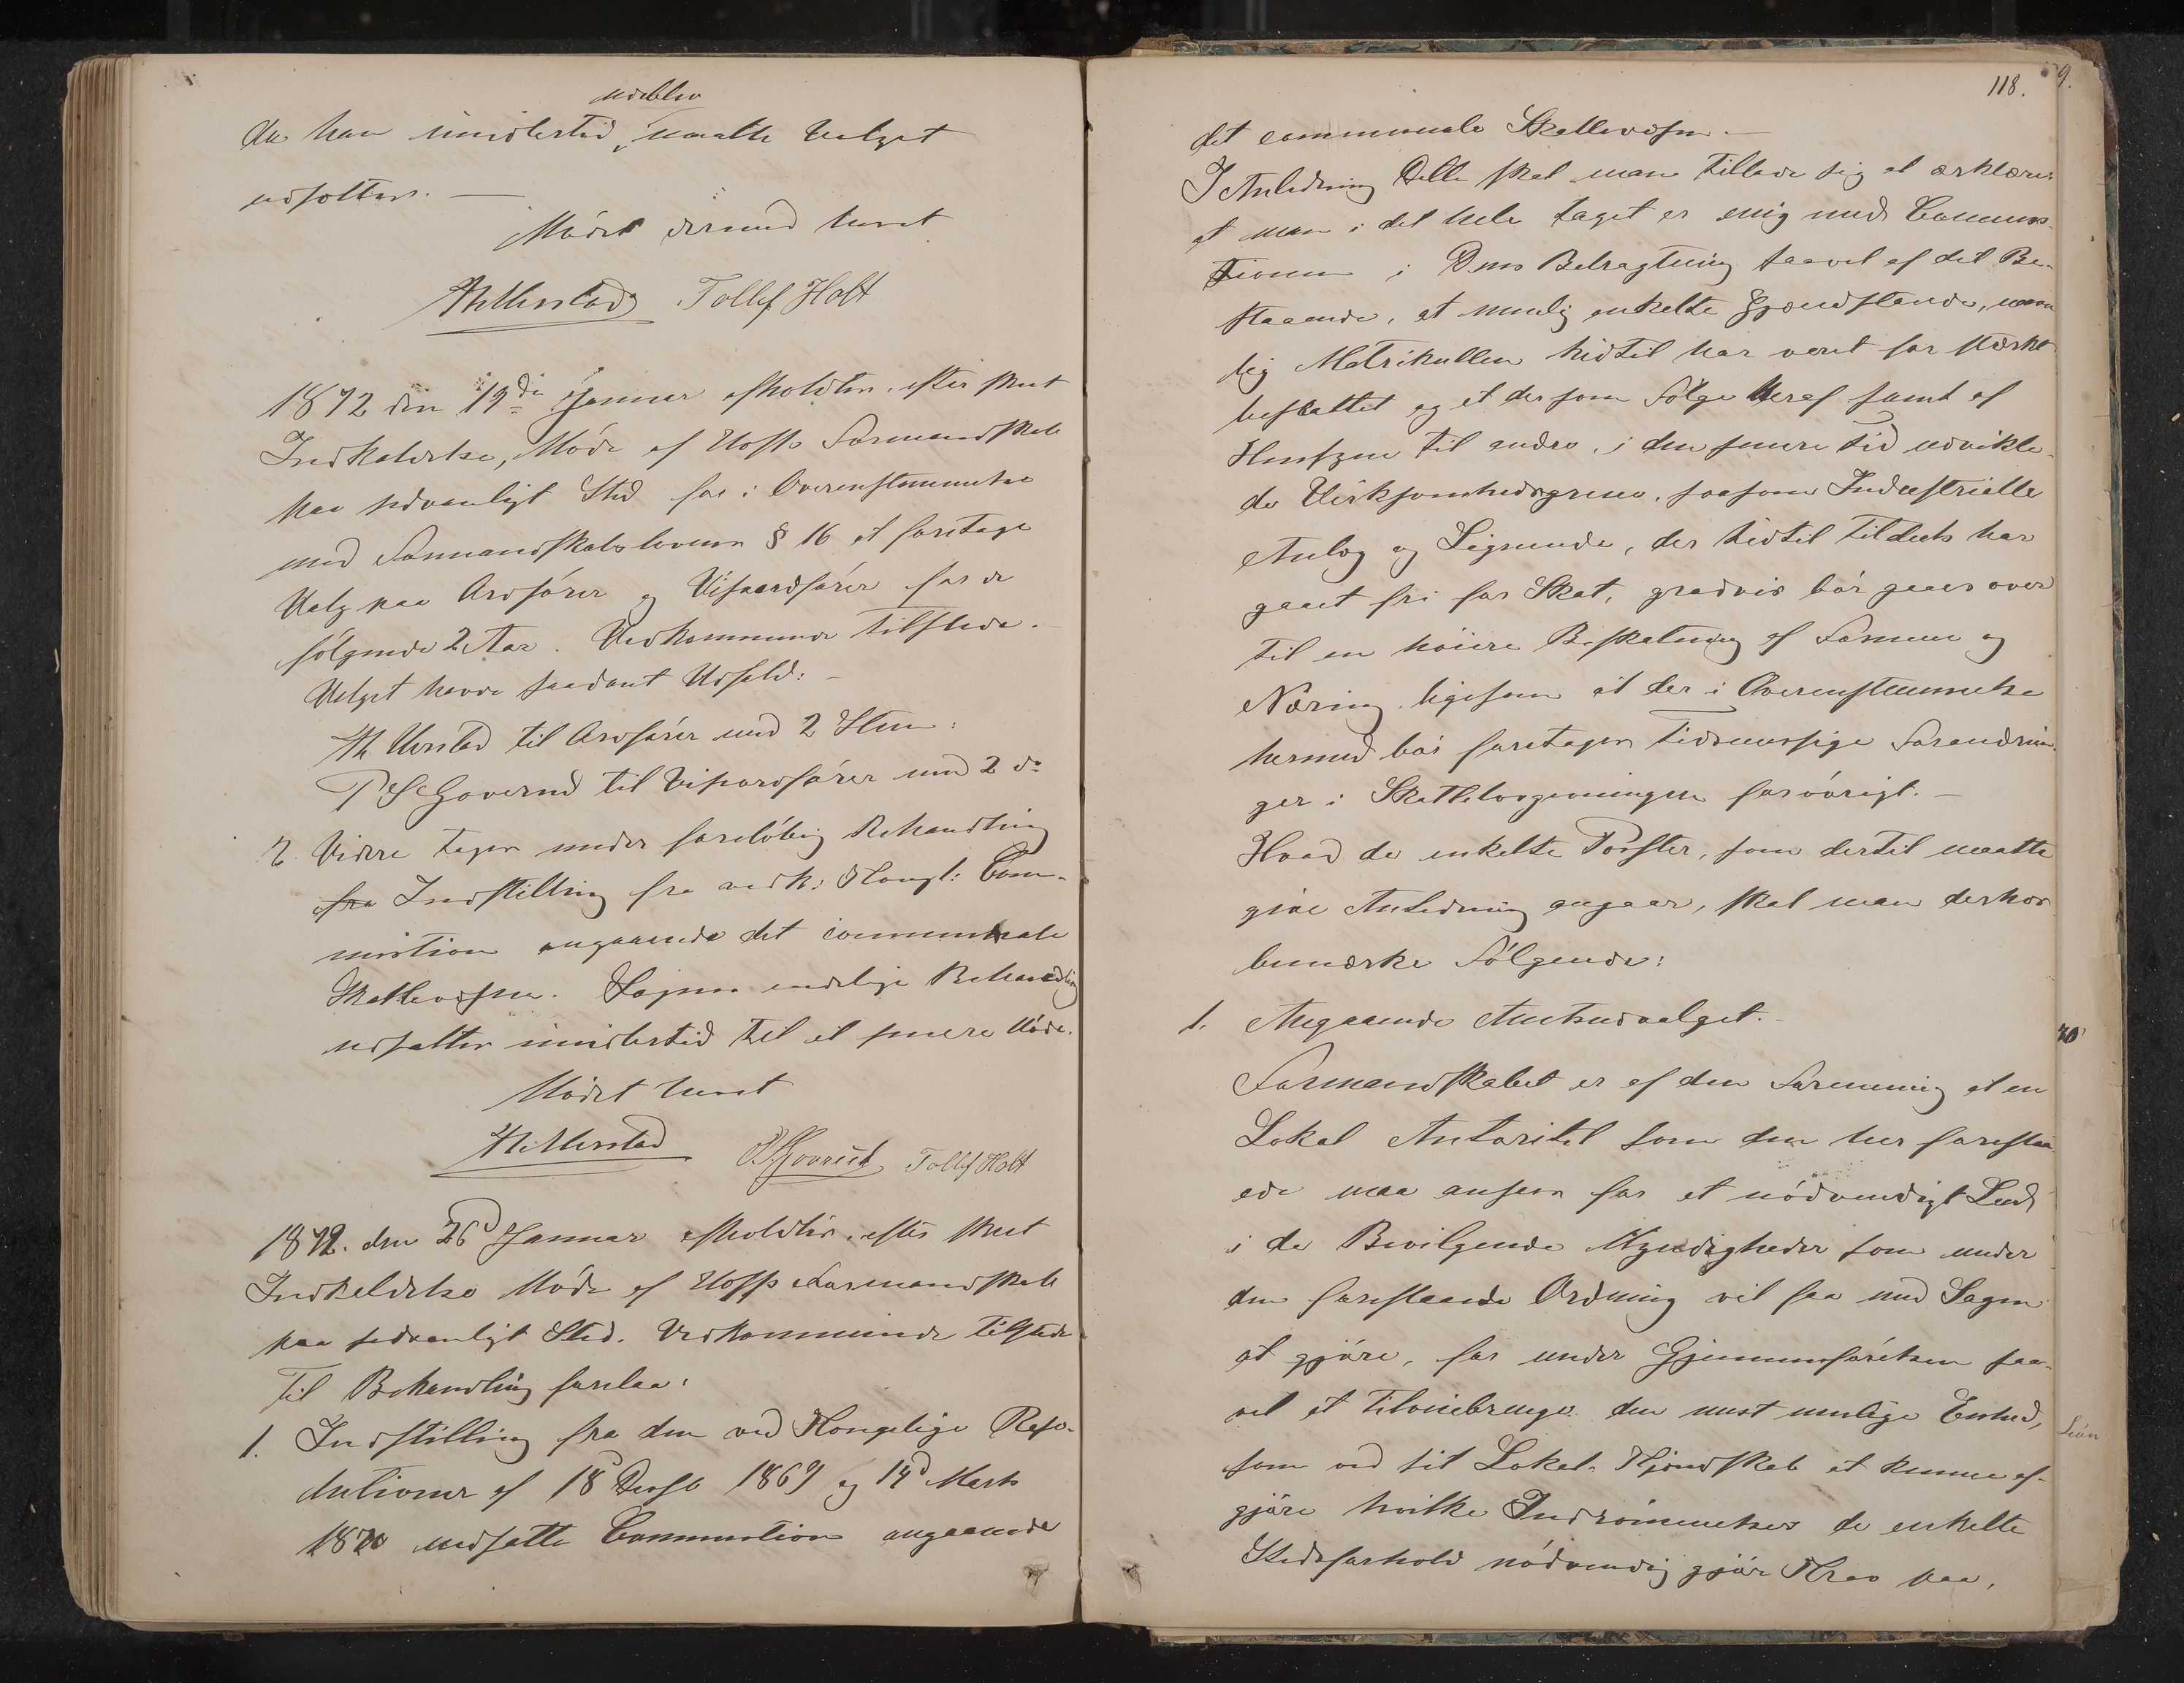 udeblev
da han imidlertid, maatte Valget
udsættes. —
Mødet dermed hævet
Tollef Holt
1872 den 19de Januar afholdtes efter skeet
Indkaldelse, Møde af Formandskab
paa sedvanligt Sted for i Overenstemmelse
med Formandskabslovens § 16 at foretage
Valg paa Ordfører og Viseordfører for de
følgende 2 Aar. Vedkommende tilstede.
Valget havde saadant Udfald: -
til Ordfører med 2 Stem:
til Viseordfører med 2 do
2. Videre toges under foreløbig Behandling
fra Indstilling fra vedk: Kongl: Com-
mission angaaende det communale
Skattevæsen. Sagens endelige Behandling
udsattes imidlertid til et senere Møde.
Mødet hævet
Tollef Holt
1872. den 26d Januar afholdtes efter skeet
Indkaldelse Møde af Formandskab
paa sedvanligt Sted. Vedkommende tilstede
Til Behandling forelaa:
1. Indstilling fra den ved Kongelige Reso-
lutioner af 18d 1869 og 14d Marts
1870 nedsatte Commission angaaende
118.
9.
det communale Skattevæsen. —
I Anledning Dette skal man tillade sig at erklære:
at man i det hele taget er enig med Commis-
sionen i Dens Betragtning saavel af det Be-
staaende, at nemlig enkelte Gjenstande, navn
lig Matrikullen hidtil har været for stærkt
beskattet og at der som Følge heraf samt af
Hensyn til andre, i den senere Tid udvikle-
de Virksomhedsgrene, saasom Industrielle
Anlæg og Lignende, der hidtil tildeels har
gaaet fri for Skat, gradvis bør gaaes over
til en høiere Beskatning af Formue og
Næring, ligesom at der i Overenstemmelse
hermed bør foretages tidsmessige Forandrin-
ger i Skattelovgivningen forøvrigt. —
Hvad de enkelte Poster, som dertil maatte
give Anledning angaar, skal man derhos
bemærke Følgende:
1. Angaaende Amtsudvalget. -
Formandskabet er af den Formening at en
Lokal Autoritet som den her foreslaa
ede maa ansees for et nødvendigt Led
i de Bevilgende Myndigheder som under
den foreslaaede Ordning vil faa med Sagen
at gjøre, for under Gjennemførelsen saa-
vel at tilveiebringe den mest mulige Enhed,
som ved sit Lokal-Kjendskab at kunne af-
gjøre hvilke Indrømmelser de enkelte
Stedsforhold nødvendig gjør Krav paa,